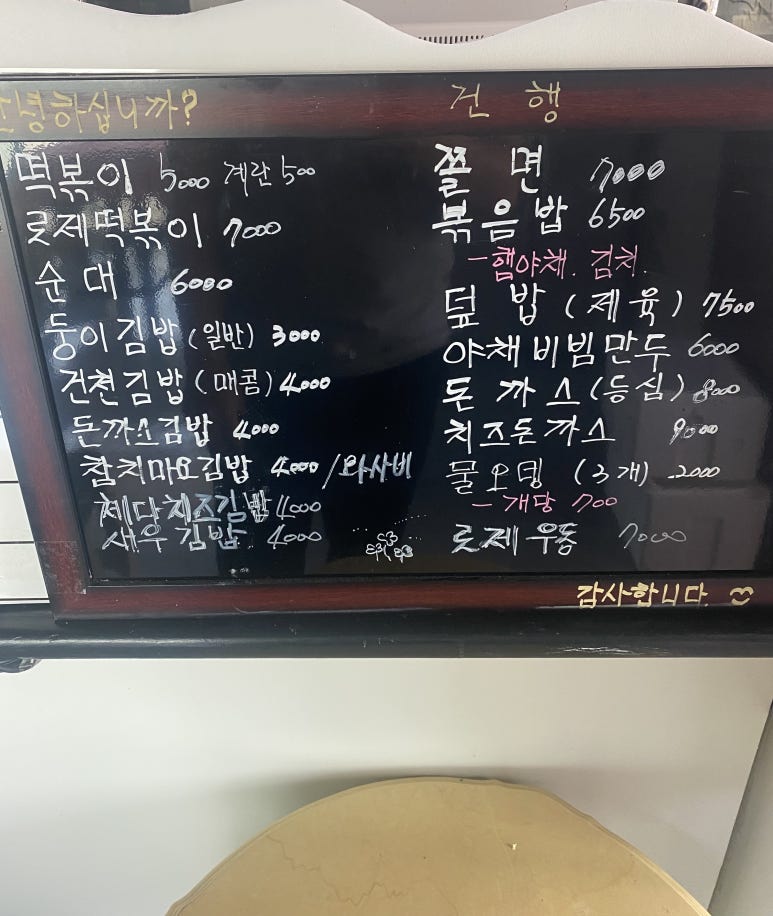 안녕하십니까?
건 행
떡볶이 5000 계란 500
로제떡볶이 7000
순대 6000
둥이김밥(일반) 3000
건천김밥(매콤) 4000
돈까스김밥 4000
참치마요김밥 4000/와사비
체다치즈김밥 4000
새우김밥 4000
쫄면 7000
볶음밥 6500
-햄야채. 김치.
덮밥(제육) 7500
야채비빔만두 6000
돈까스(등심) 8000
치즈돈까스 9000
물오뎅 (3개) 2000
- 개당 700
로제우동 7000
감사합니다.